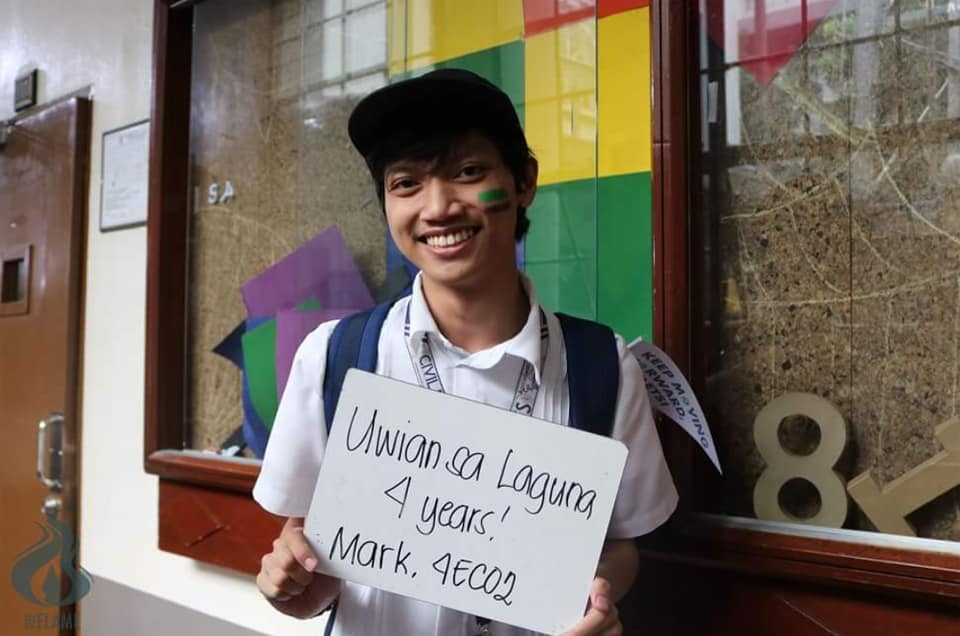 SA
CIVIL
KEEP MOVING
FORWARD,
Uwian sa Laguna
4 years!
Mark. 4ECO2
8
@FLAME